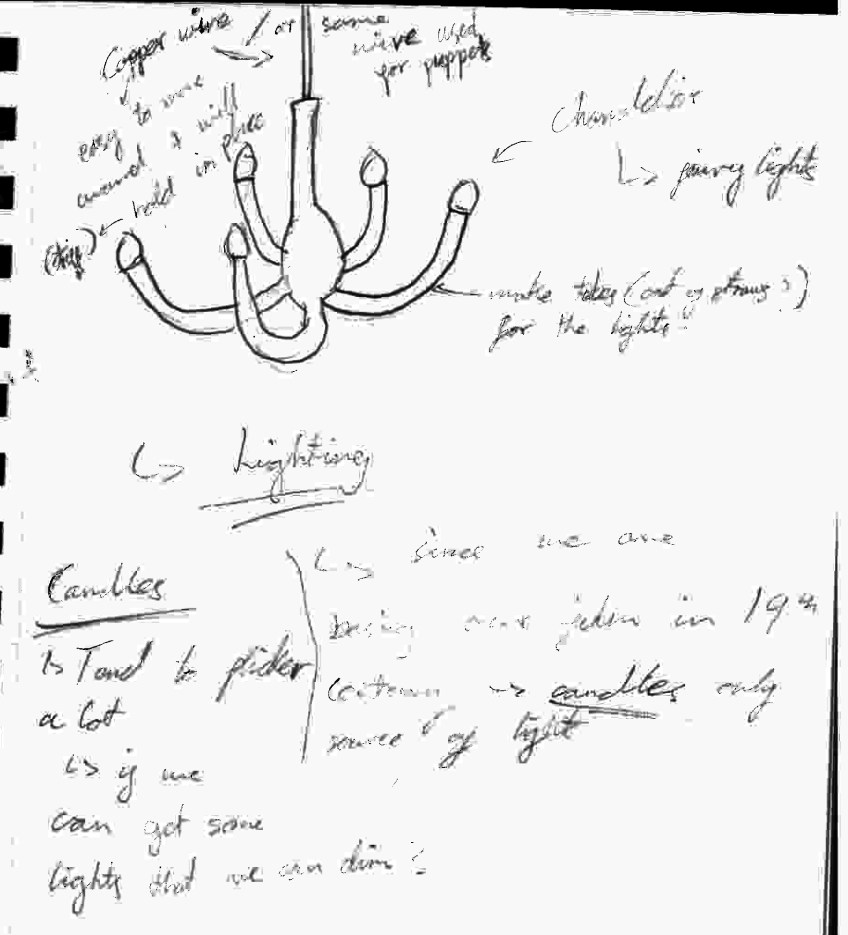 Copper wire / or same
wire used
for puppets
easy to move
around & will
hold in place
Chandelier
↳ lights
make tubes (out of straws?)
for the lights
↳ Lighting
Candles
↳ Tend to flicker
a lot
↳ if we
can get some
lights that we can dim?
↳ since we are
our film in 19th
→ candles only
source of light